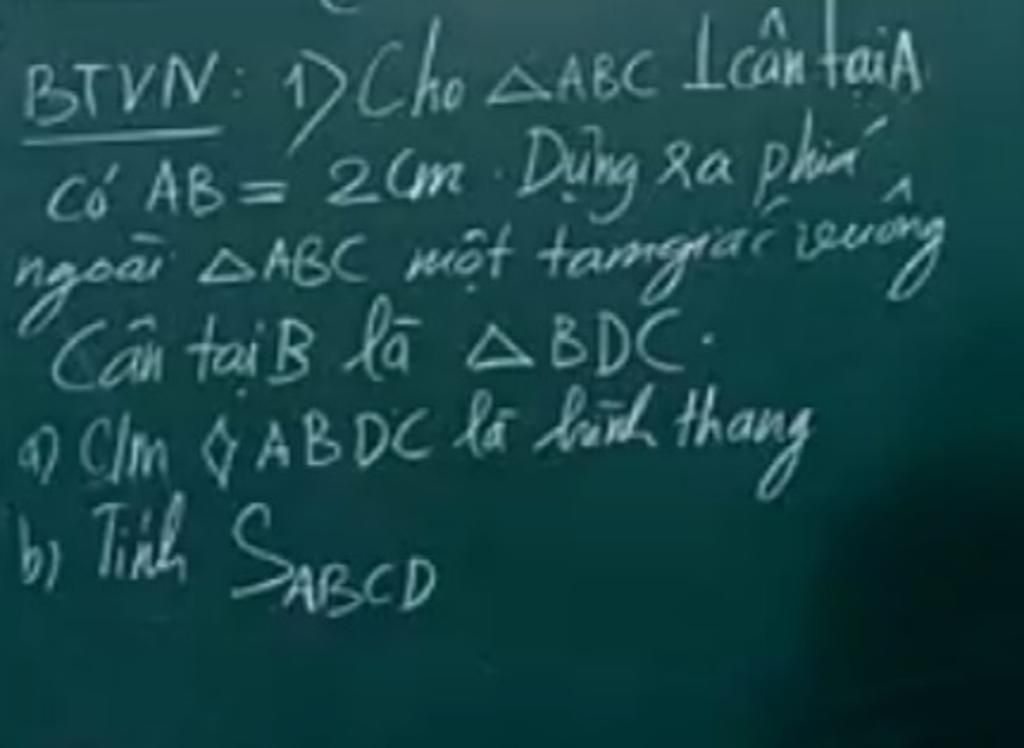 BTVN: 1) Cho △ABC ⊥ cân tại A
có AB = 2cm. Dựng ra phía
ngoài △ABC một tam giác vuông
Cân tại B là △BDC.
a) C/m ◊ABDC là hình thang
b) Tính S_ABCD